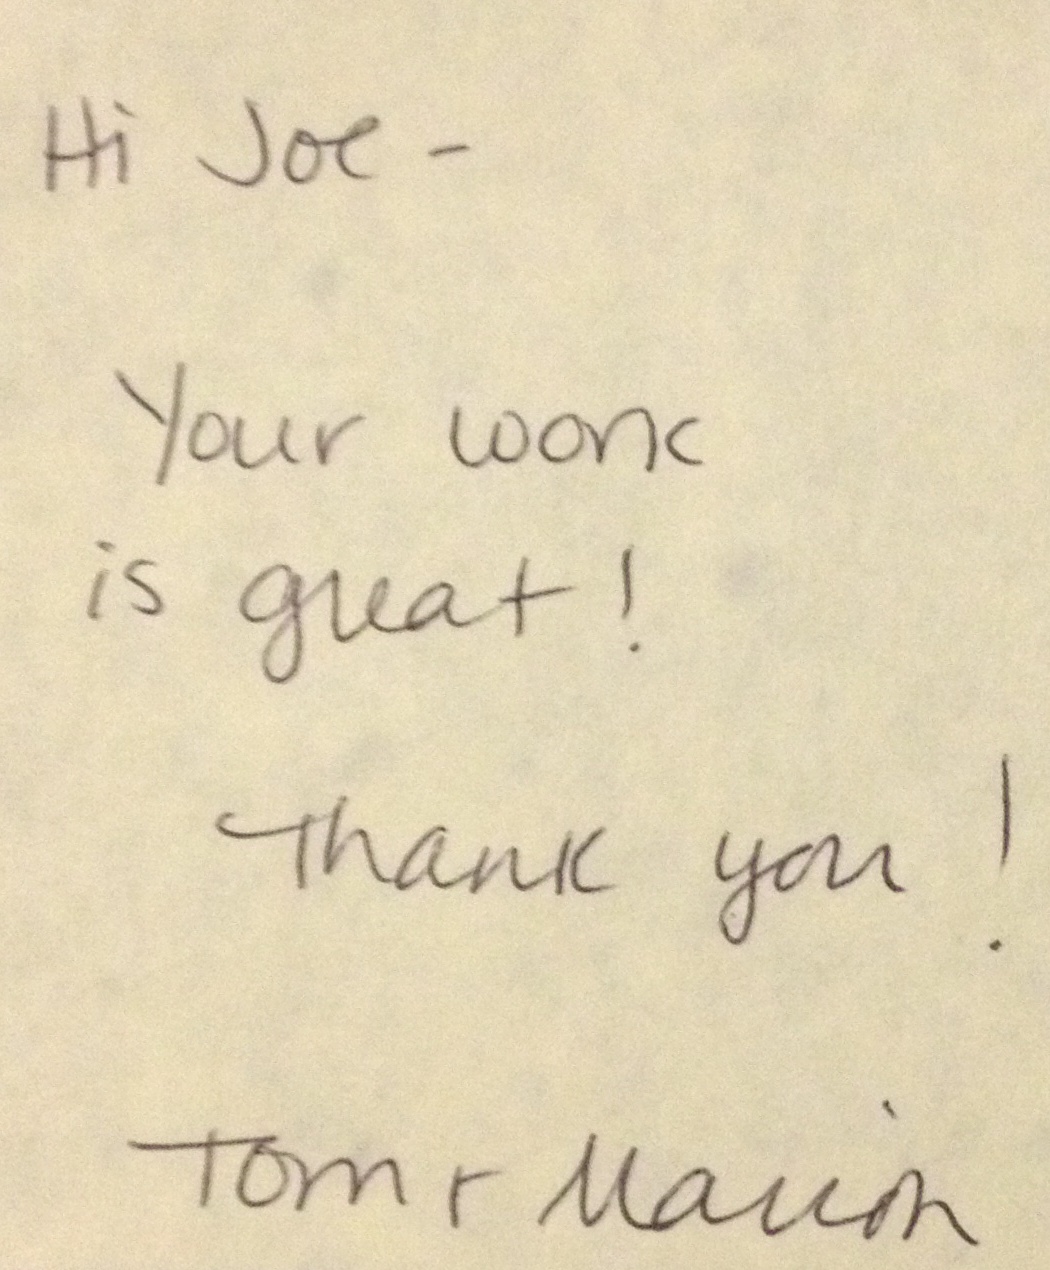 Hi Joe -
Your work
is great!
Thank you!
Tom + Marion